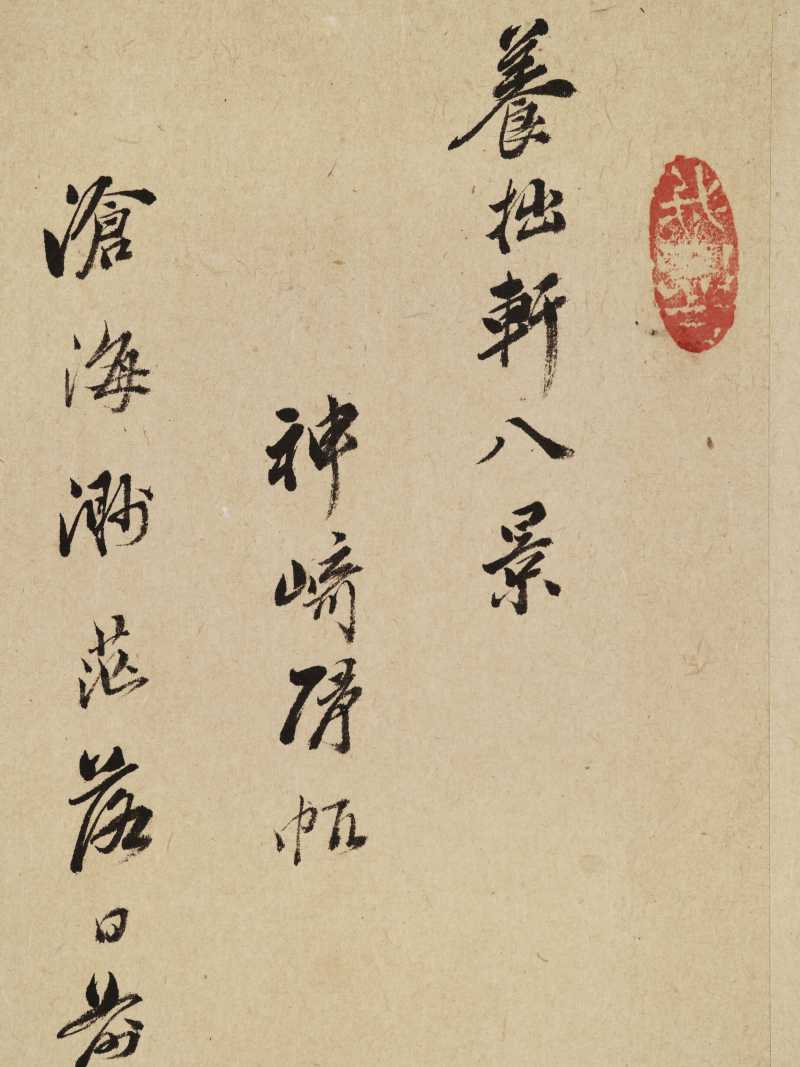 養拙軒八景
神崎歸帆
滄海渺茫落日前